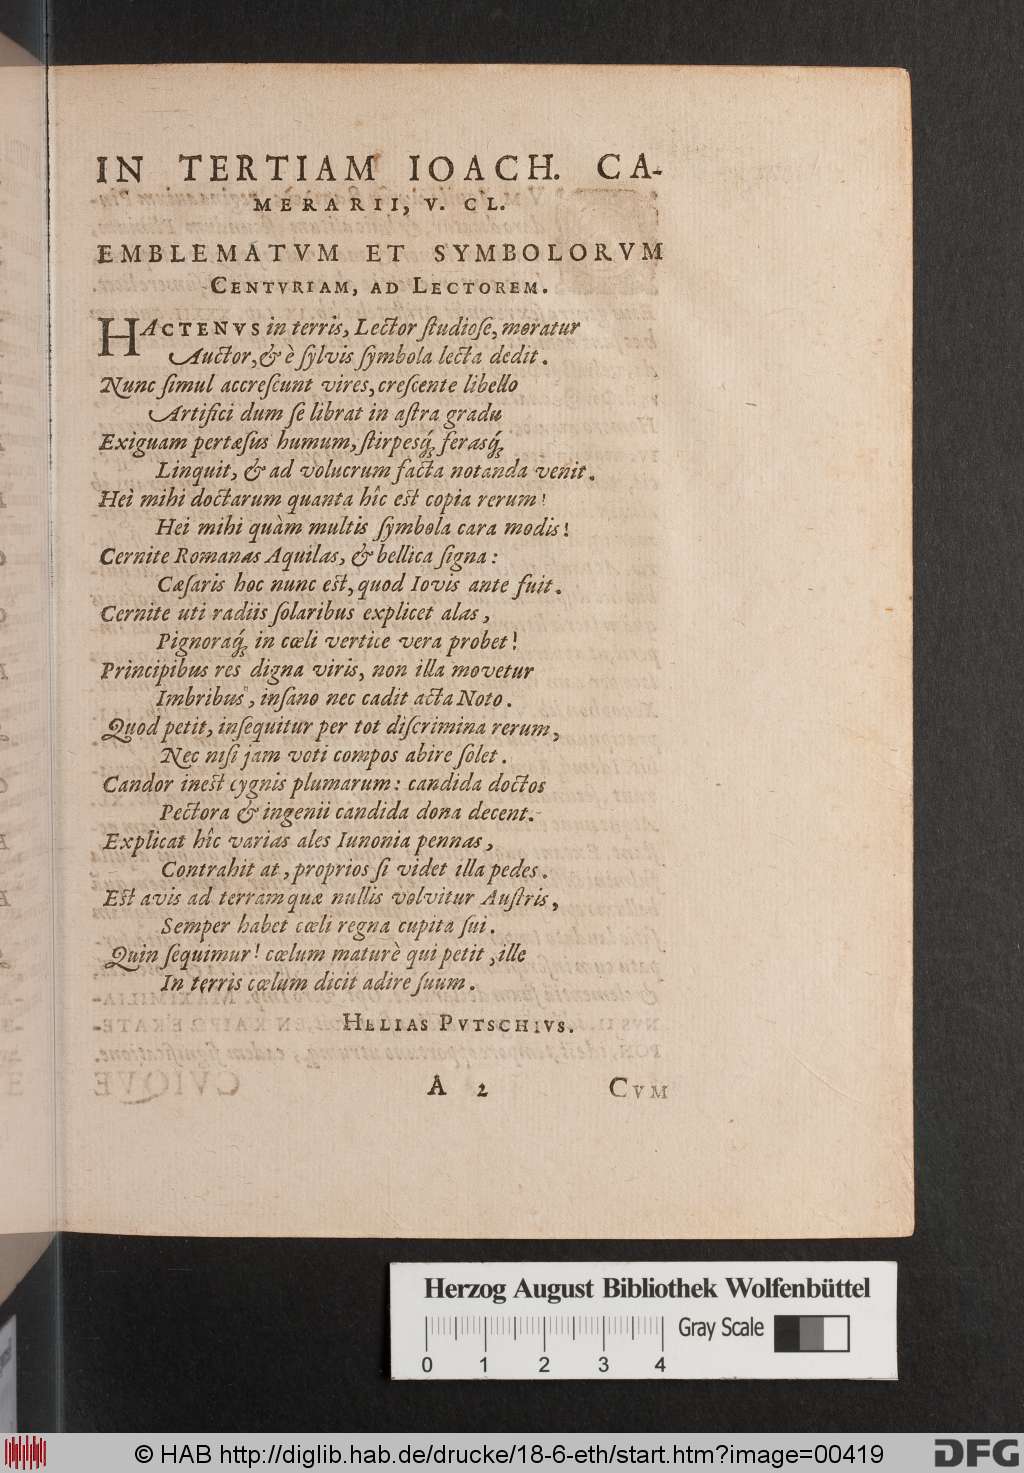 IN TERTIAM IOACH. CA-
MERARII, V. CL.
EMBLEMATVM ET SYMBOLORVM
CENTVRIAM, AD LECTOREM.
HACTENVS in terris, Lector ſtudioſe, moratur
Auctor, & è ſylvis ſymbola lecta dedit.
Nunc ſimul accreſcunt vires, creſcente libello
Artifici dum ſe librat in aſtra gradu
Exiguam pertæſus humum, ſtirpesq́; ferasq́;
Linquit, & ad volucrum facta notanda venit.
Hei mihi doctarum quanta hîc eſt copia rerum!
Hei mihi quàm multis ſymbola cara modis!
Cernite Romanas Aquilas, & bellica ſigna:
Cæſaris hoc nunc eſt, quod Iovis ante fuit.
Cernite uti radiis ſolaribus explicet alas,
Pignoraq́; in cœli vertice vera probet!
Principibus res digna viris, non illa movetur
Imbribus, inſano nec cadit acta Noto.
Quod petit, inſequitur per tot diſcrimina rerum,
Nec niſi jam voti compos abire ſolet.
Candor ineſt cygnis plumarum: candida doctos
Pectora & ingenii candida dona decent.
Explicat hîc varias ales Iunonia pennas,
Contrahit at, proprios ſi videt illa pedes.
Eſt avis ad terram quæ nullis volvitur Auſtris,
Semper habet cœli regna cupita ſui.
Quin ſequimur! cœlum maturè qui petit, ille
In terris cœlum dicit adire ſuum.
HELIAS PVTSCHIVS.
A 2 CVM
Herzog August Bibliothek Wolfenbüttel
Gray Scale
0 1 2 3 4
© HAB http://diglib.hab.de/drucke/18-6-eth/start.htm?image=00419
DFG